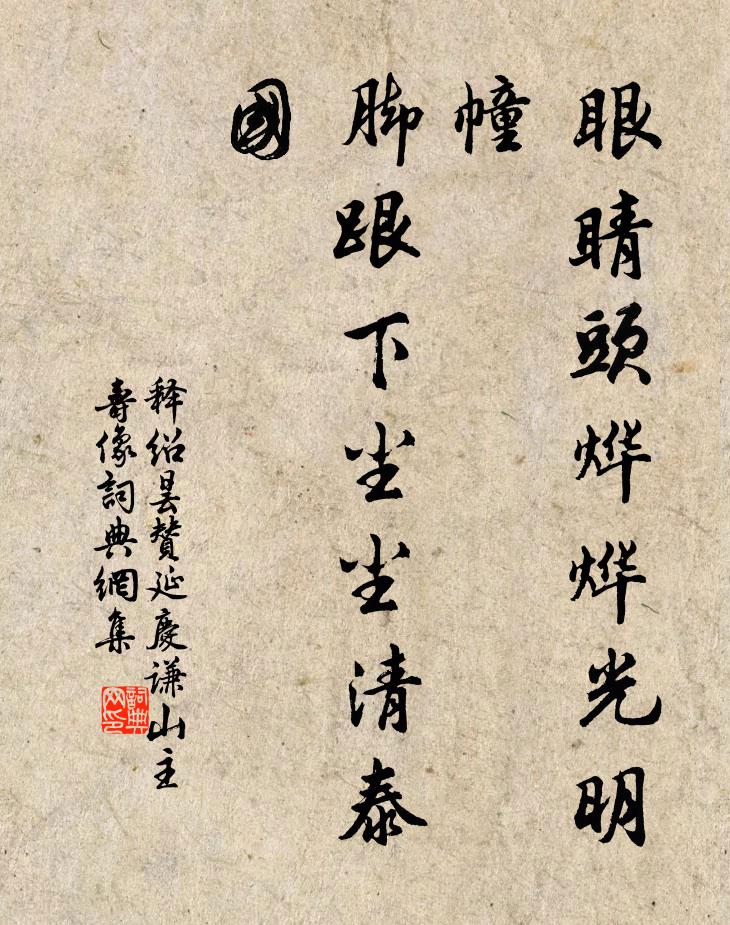 眼睛頭烨烨光明
幢
脚跟下尘尘清泰
國
释绍昙賛延慶谦山主
壽像詞典網集
詞典
网印